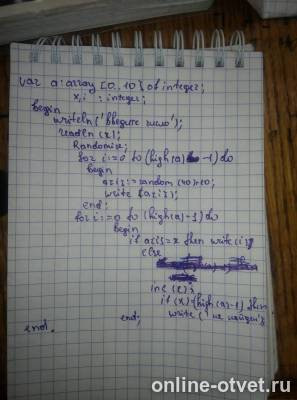 var a: array [0..10] of integer;
x,i : integer;
begin
writeln('введите число');
readln(x);
Randomize;
for i:=0 to (high(a) -1) do
begin
a[i]:=random(40)+10;
write(a[i]);
end;
for i:=0 to (high(a)-1) do
begin
if a[i]=x then write(i)
else
inc(x);
if (x) (high(a)-1) then
write('не найден');
end;
end.
online-otvet.ru